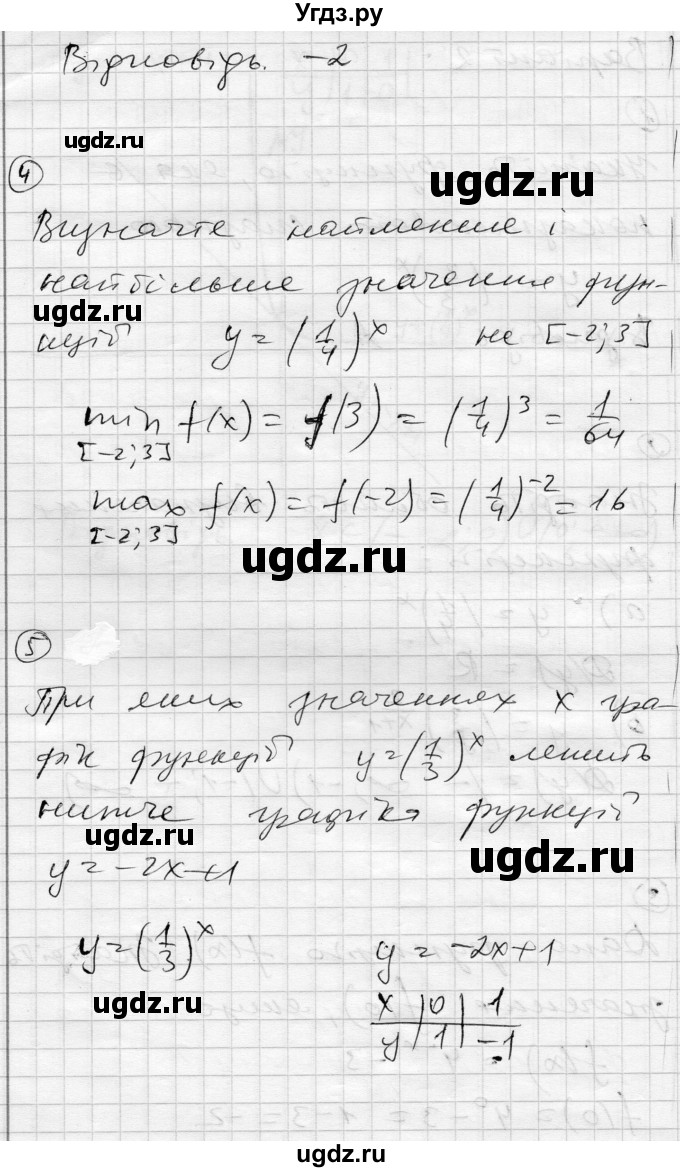 Угдз.ру
Відповідь. -2
ugdz.ru
4
ugdz.ru
Визначте найменше і
найбільше значення фун-
ugdz.ru
кції y = (1/4)^x на [-2; 3]
min f(x) = f(3) = (1/4)^3 = 1/64
[-2; 3]
max f(x) = f(-2) = (1/4)^-2 = 16
[-2; 3]
ugdz.ru
5
ugdz.ru
При яких значеннях x гра-
фік функції y = (1/3)^x лежить
нижче графіка функції
ugdz.ru
ugdz.ru
y = -2x+1
y = (1/3)^x y = -2x+1
x | 0 | 1
y | 1 | -1
ugdz.ru